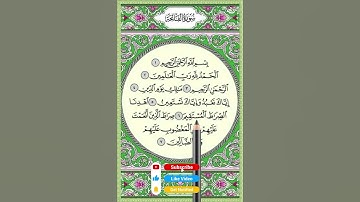 سورة الفاتحة
بِسْمِ اللَّهِ الرَّحْمَٰنِ الرَّحِيمِ ١
الْحَمْدُ لِلَّهِ رَبِّ الْعَالَمِينَ ٢
الرَّحْمَٰنِ الرَّحِيمِ ٣ مَالِكِ يَوْمِ الدِّينِ ٤
إِيَّاكَ نَعْبُدُ وَإِيَّاكَ نَسْتَعِينُ ٥ اهْدِنَا
الصِّرَاطَ الْمُسْتَقِيمَ ٦ صِرَاطَ الَّذِينَ أَنْعَمْتَ
عَلَيْهِمْ الْمَغْضُوبِ عَلَيْهِمْ
الضَّالِّينَ ٧
Subscribe
Like Video
Get Notified